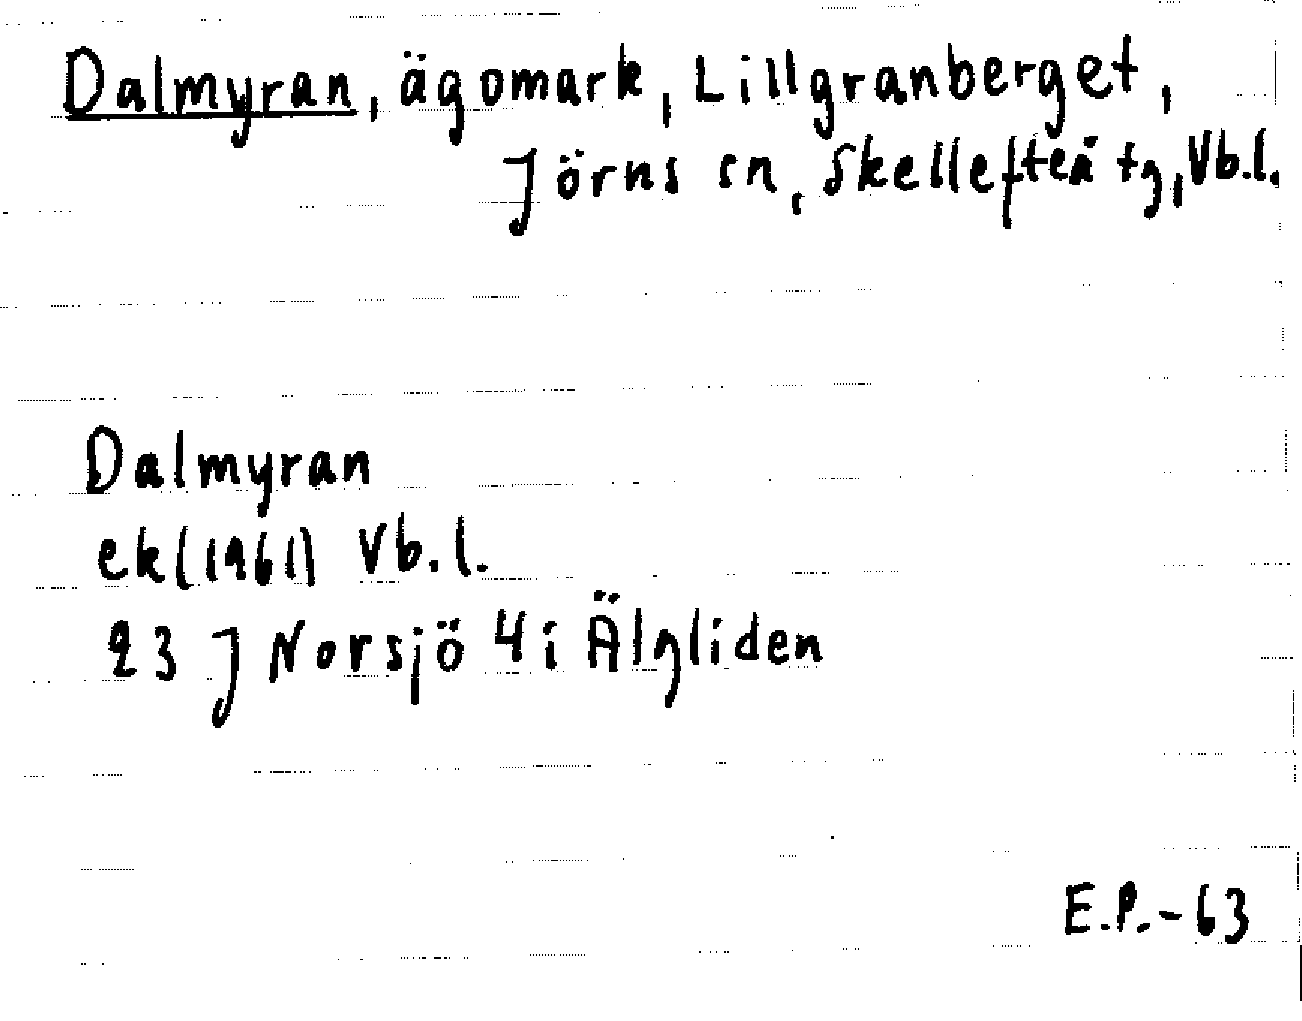 Dalmyran, ägomark, Lillgranberget,
Jörns sn, Skellefteå tg, Vb.l.
Dalmyran
ek (1961) Vb.l.
23 J Norsjö 4 i Älgliden
E.P.-63